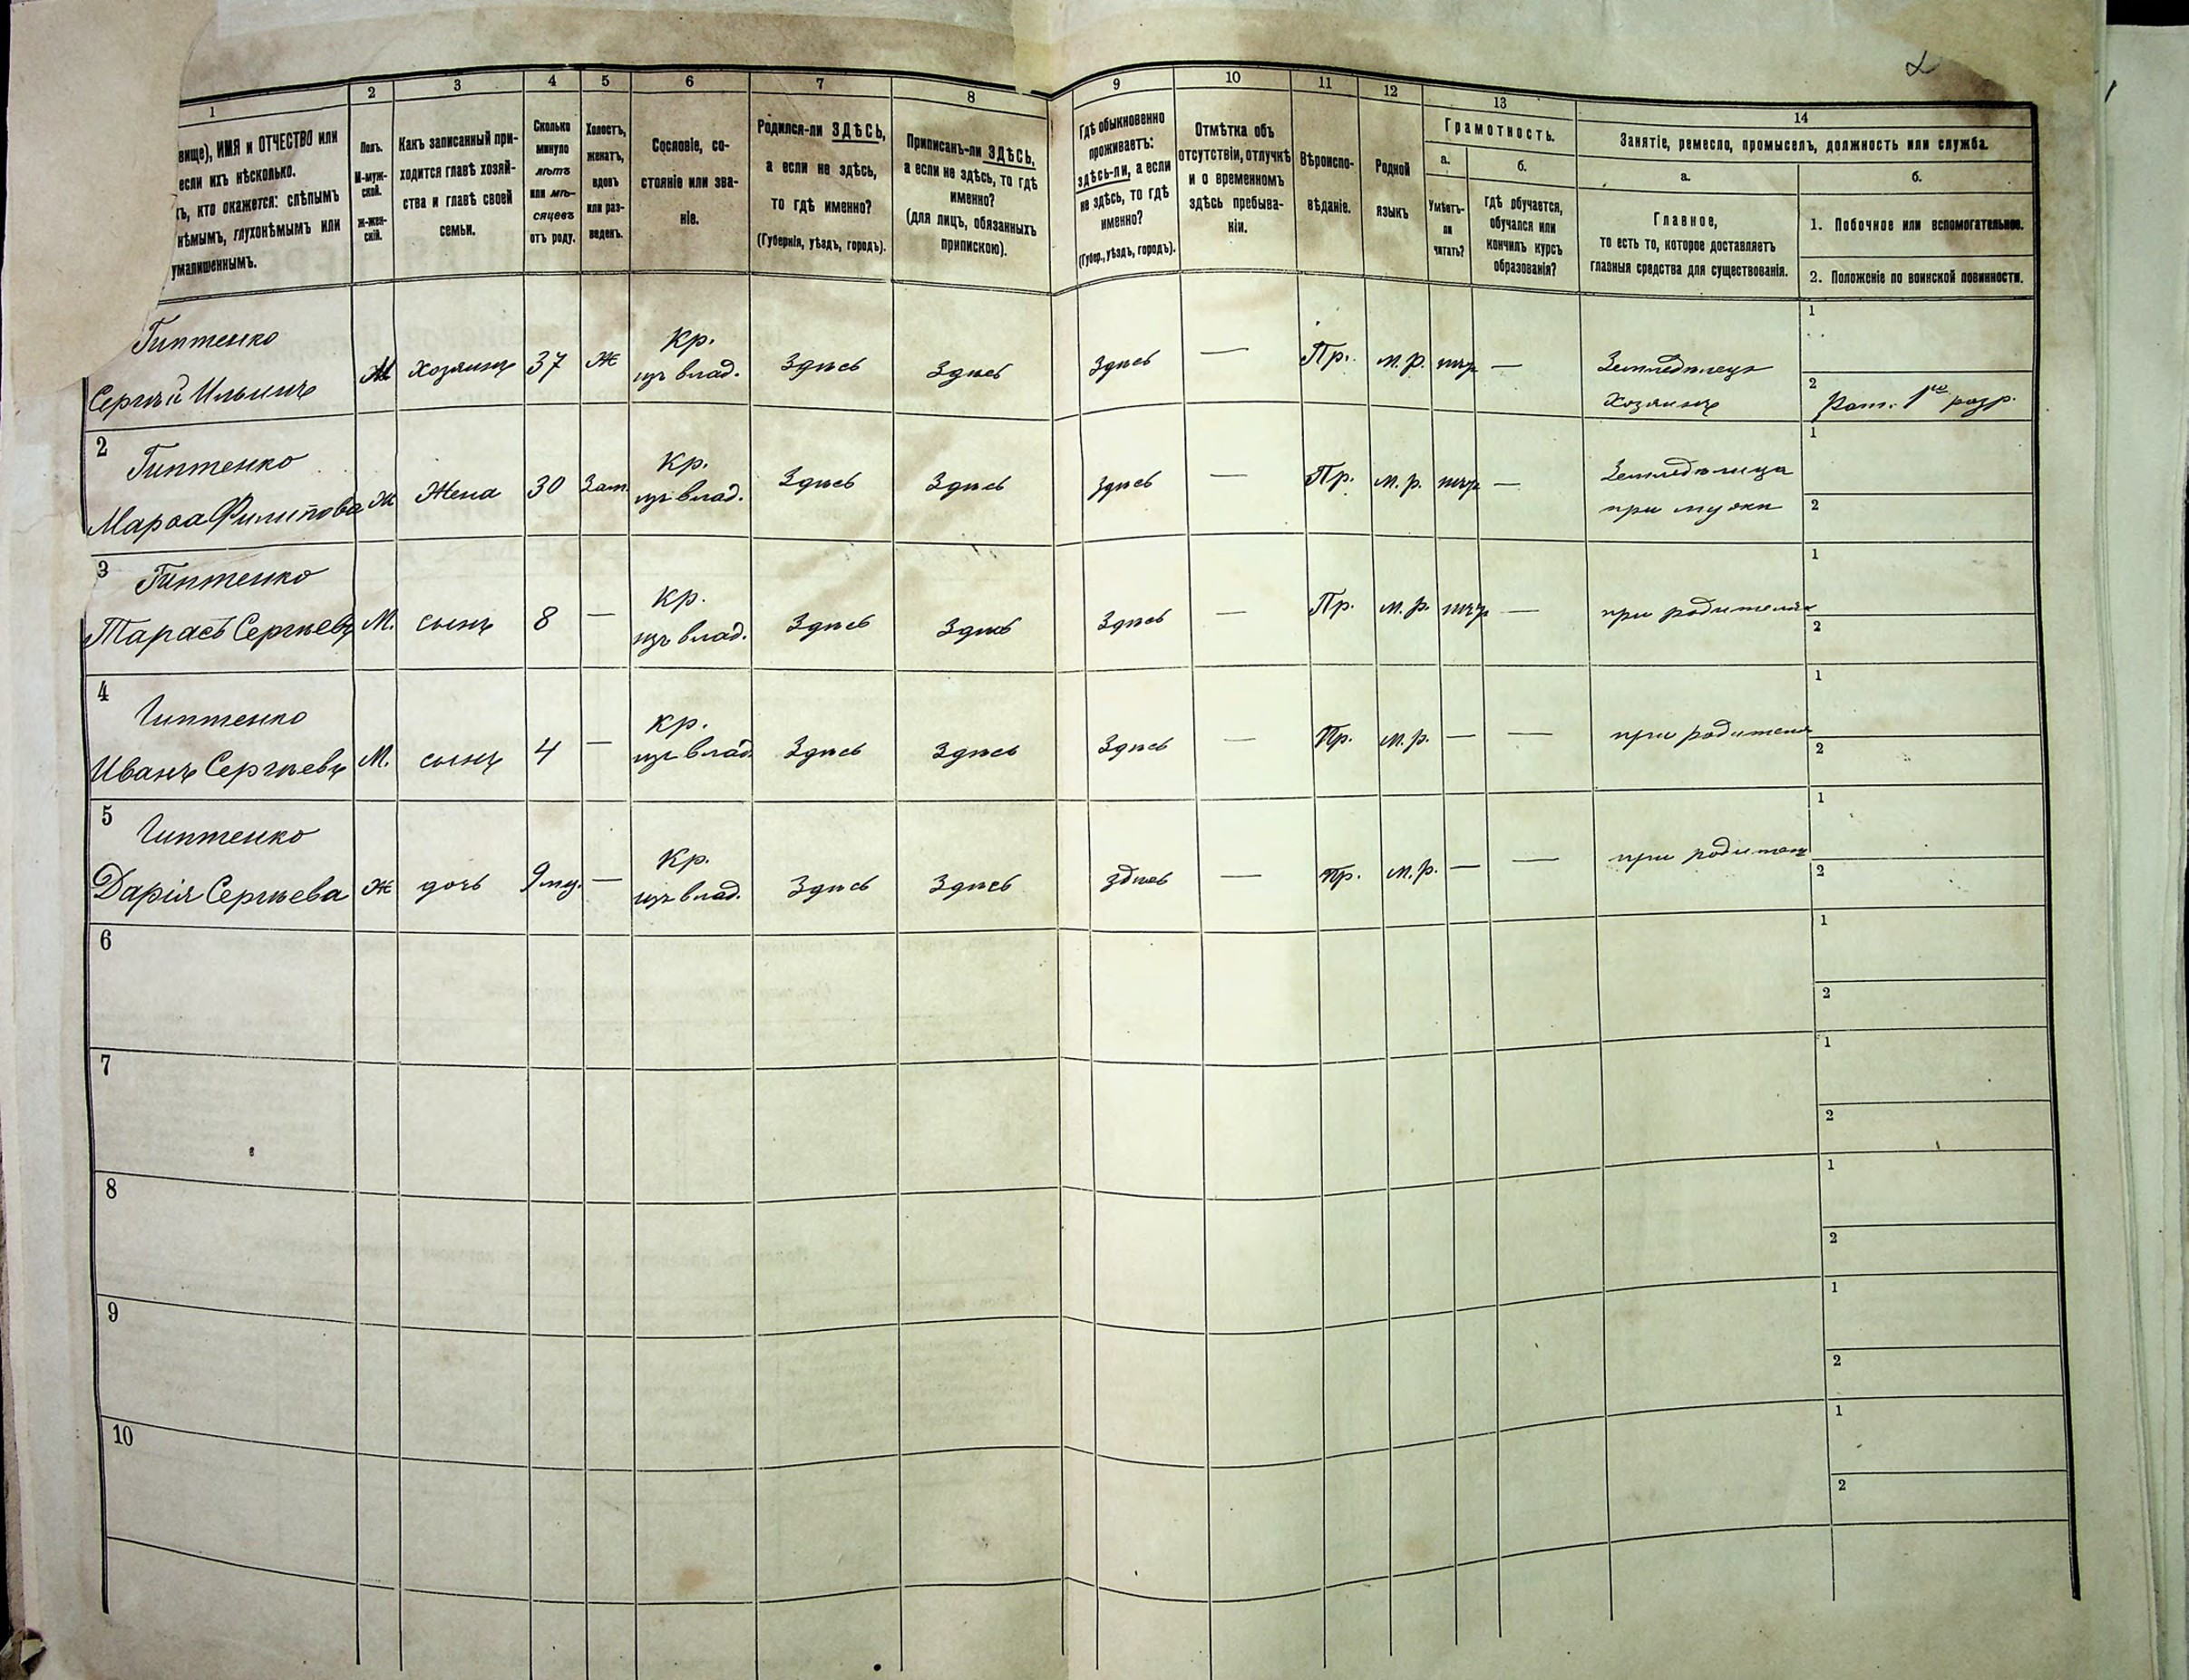 1 2 3 4 5 6 7 8 9 10 11 12 13 14
вище), ИМЯ и ОТЧЕСТВО или
если ихъ нѣсколько.
ъ, кто окажется: слѣпымъ
нѣмымъ, глухонѣмымъ или
умалишеннымъ.
Полъ.
М-муж-
ской.
Ж-жен-
скій.
Какъ записанный при-
ходится главѣ хозяй-
ства и главѣ своей
семьи.
Сколько
минуло
лѣтъ
или мѣ-
сяцевъ
отъ роду.
Холостъ,
женатъ,
вдовъ
или раз-
веденъ.
Сословіе, со-
стояніе или зва-
ніе.
Родился-ли ЗДѢСЬ,
а если не здѣсь,
то гдѣ именно?
(Губернія, уѣздъ, городъ).
Приписанъ-ли ЗДѢСЬ,
а если не здѣсь, то гдѣ
именно?
(для лицъ, обязанныхъ
припискою).
Гдѣ обыкновенно
проживаетъ:
здѣсь-ли, а если
не здѣсь, то гдѣ
именно?
(Губер., уѣздъ, городъ).
Отмѣтка объ
отсутствіи, отлучкѣ
и о временномъ
здѣсь пребыва-
ніи.
Вѣроиспо-
вѣданіе.
Родной
языкъ
Грамотность.
а.
Умѣетъ-
ли
читать?
б.
Гдѣ обучается,
обучался или
кончилъ курсъ
образованія?
Занятіе, ремесло, промыселъ, должность или служба.
а.
Главное,
то есть то, которое доставляетъ
главныя средства для существованія.
б.
1. Побочное или вспомогательное.
2. Положеніе по воинской повинности.
Гиптенко Кр. 1
Сергѣй Ильичъ М хозяинъ 37 Ж изъ влад. Здѣсь Здѣсь Здѣсь — Пр. м.р. нѣт — Земледѣлецъ
хозяинъ 2 Рат. 1го разр.
2 Гиптенко Кр. 1
Марѳа Филипова Ж Жена 30 Зам. изъ влад. Здѣсь Здѣсь Здѣсь — Пр. м.р. нѣт — Земледѣлица
при мужѣ 2
3 Гиптенко Кр. 1
Тарасъ Сергѣевъ М. сынъ 8 — изъ влад. Здѣсь Здѣсь Здѣсь — Пр. м.р. нѣт — при родителях 2
4 Гиптенко Кр. 1
Иванъ Сергѣевъ М. сынъ 4 — изъ влад. Здѣсь Здѣсь Здѣсь — Пр. м.р. — — при родител 2
5 Гиптенко Кр. 1
Дарія Сергѣева Ж дочь 9 мц. — изъ влад. Здѣсь Здѣсь здѣсь — Пр. м.р. — — при родител 2
6 1
2
7 1
2
8 1
2
9 1
2
10 1
2